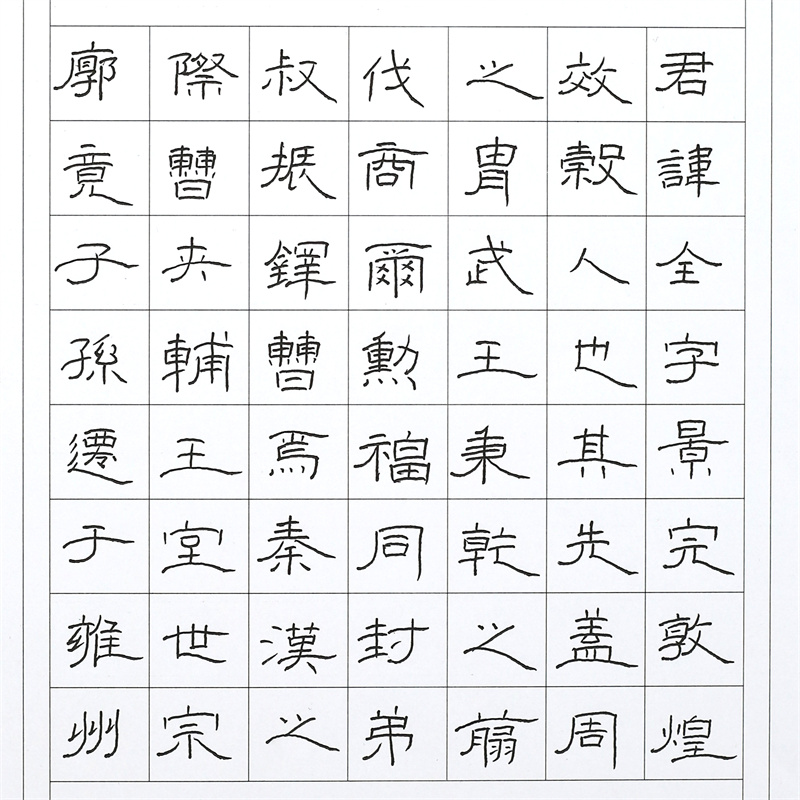 君諱全字景完敦煌
效穀人也其先蓋周
之胄武王秉乾之翦
伐商爾勳福同封弟
叔振鐸曹焉秦漢之
際曹夾輔王室世宗
廓竟子孫遷于雍州